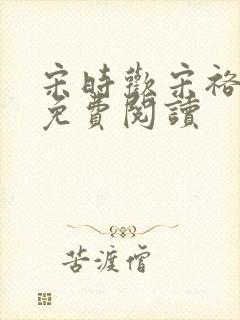 宋時歡宋裕
免費閱讀
苦渡僧